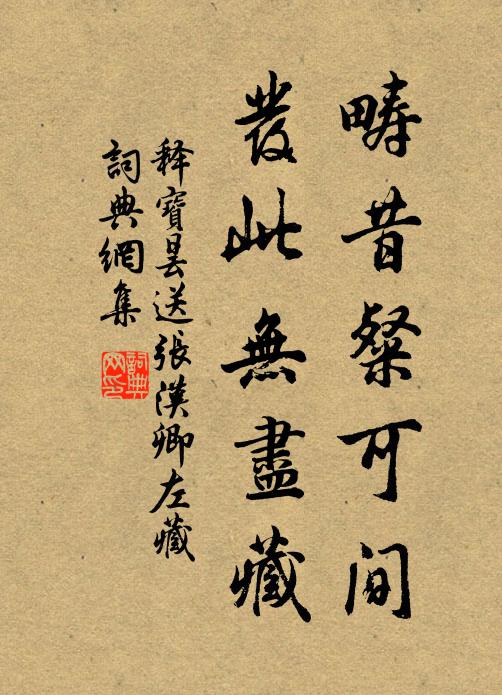 疇昔粲可间
發此無盡藏
釋寶曇送張漢卿左藏
詞典網集
詞典网印